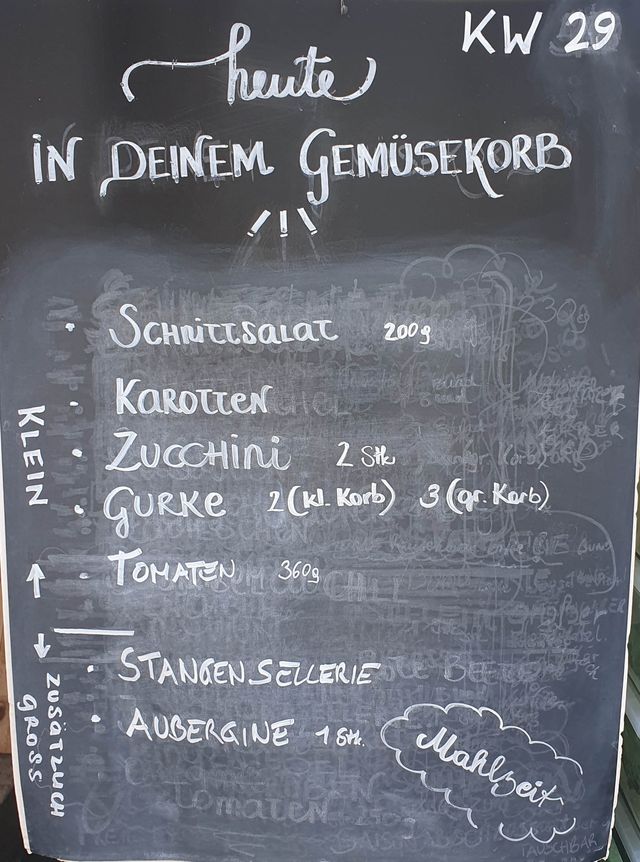 KW 29
heute
IN DEINEM GEMÜSEKORB
• SCHNITTSALAT 200g
• KAROTTEN
• ZUCCHINI 2 Stk
• GURKE 2 (kl. Korb) 3 (gr. Korb)
• TOMATEN 360g
KLEIN
• STANGENSELLERIE
• AUBERGINE 1 Stk.
ZUSÄTZLICH
GROSS
Mahlzeit
Tomaten
TAUSCHBAR